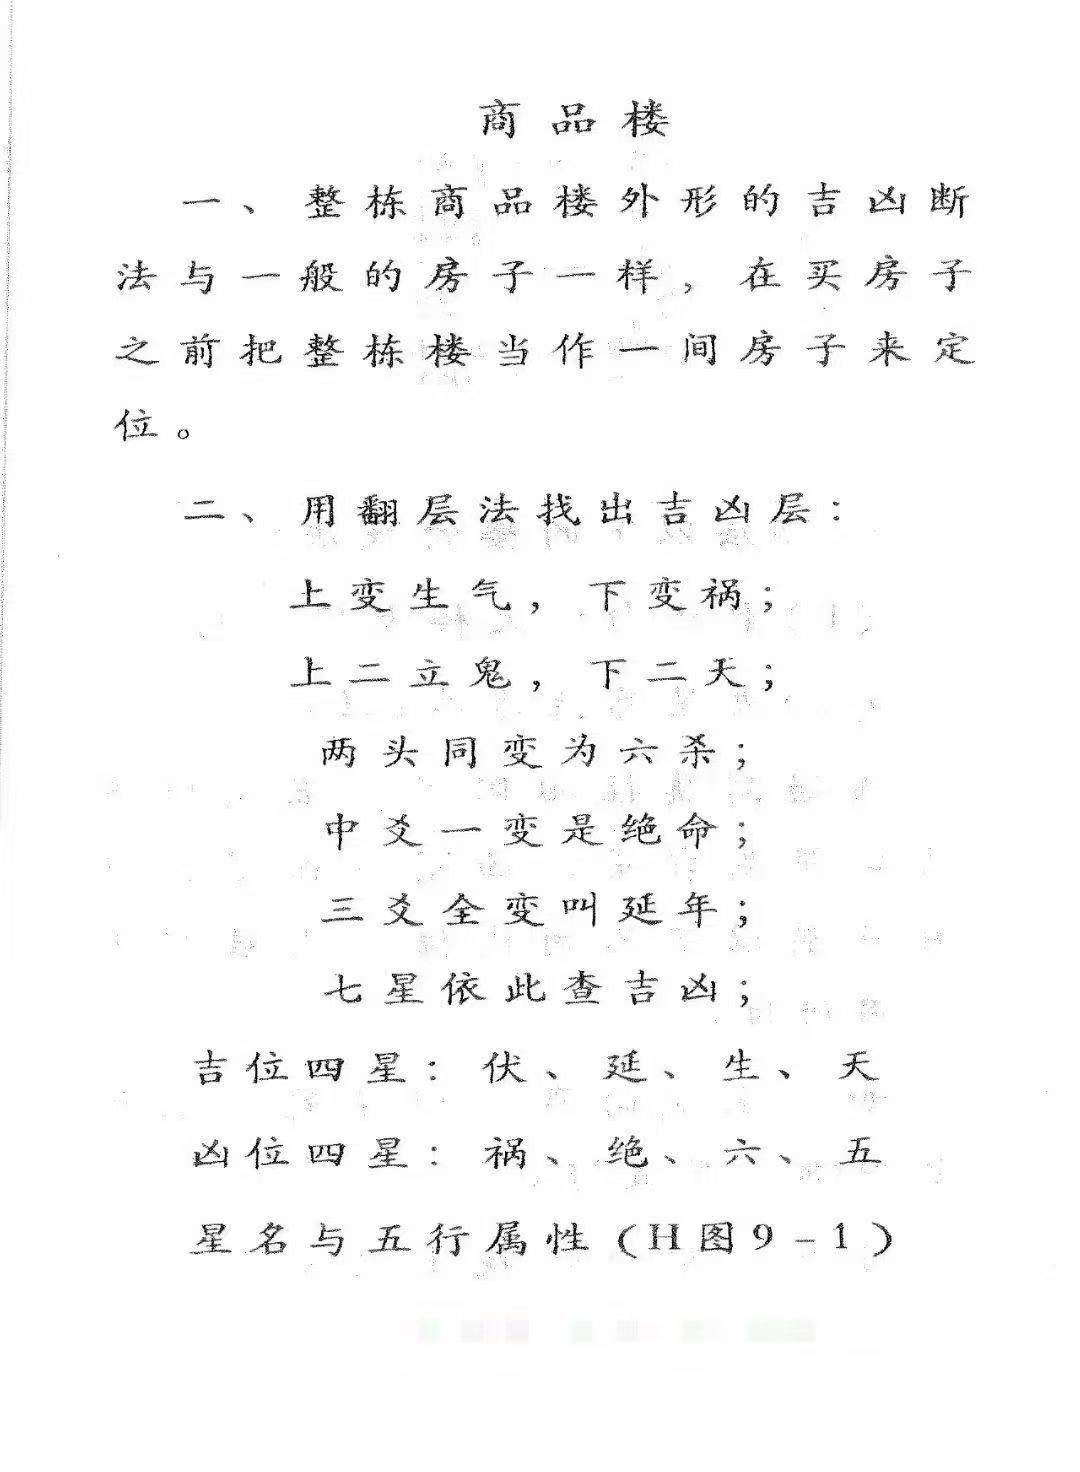 商品楼
一、整栋商品楼外形的吉凶断
法与一般的房子一样，在买房子
之前把整栋楼当作一间房子来定
位。
二、用翻层法找出吉凶层：
上变生气，下变祸；
上二立鬼，下二天；
两头同变为六杀；
中爻一变是绝命；
三爻全变叫延年；
七星依此查吉凶；
吉位四星：伏、延、生、天
凶位四星：祸、绝、六、五
星名与五行属性(H图9-1)